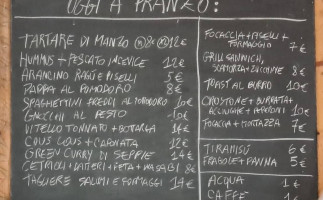 OGGI A PRANZO:
TARTARE DI MANZO 12€
HUMMUS + PESCATO IN CEVICE 12€
ARANCINO RAGÙ E PISELLI 5€
PAPPA AL POMODORO 8€
SPAGHETTINI FREDDI AL POMODORO 10€
GNOCCHI AL PESTO 10€
VITELLO TONNATO + BOTTARGA 14€
COUS COUS + CAPONATA 12€
GREEN CURRY DI SEPPIE 14€
CETRIOLI + DATTERI + FETA + WASABI 8€
TAGLIERE SALUMI E FORMAGGI 14€
FOCACCIA + PISELLI +
FORMAGGIO 7€
GRILL SANDWICH,
SCAMORZA + ZUCCHINE 8€
TOAST AL BURRO 10€
CROSTONE + BURRATA +
ACCIUGHE + PEPERONI 10€
FOCACCIA + MORTAZZA 7€
TIRAMISÙ 6€
FRAGOLE + PANNA 5€
ACQUA 1€
CAFFE 1€